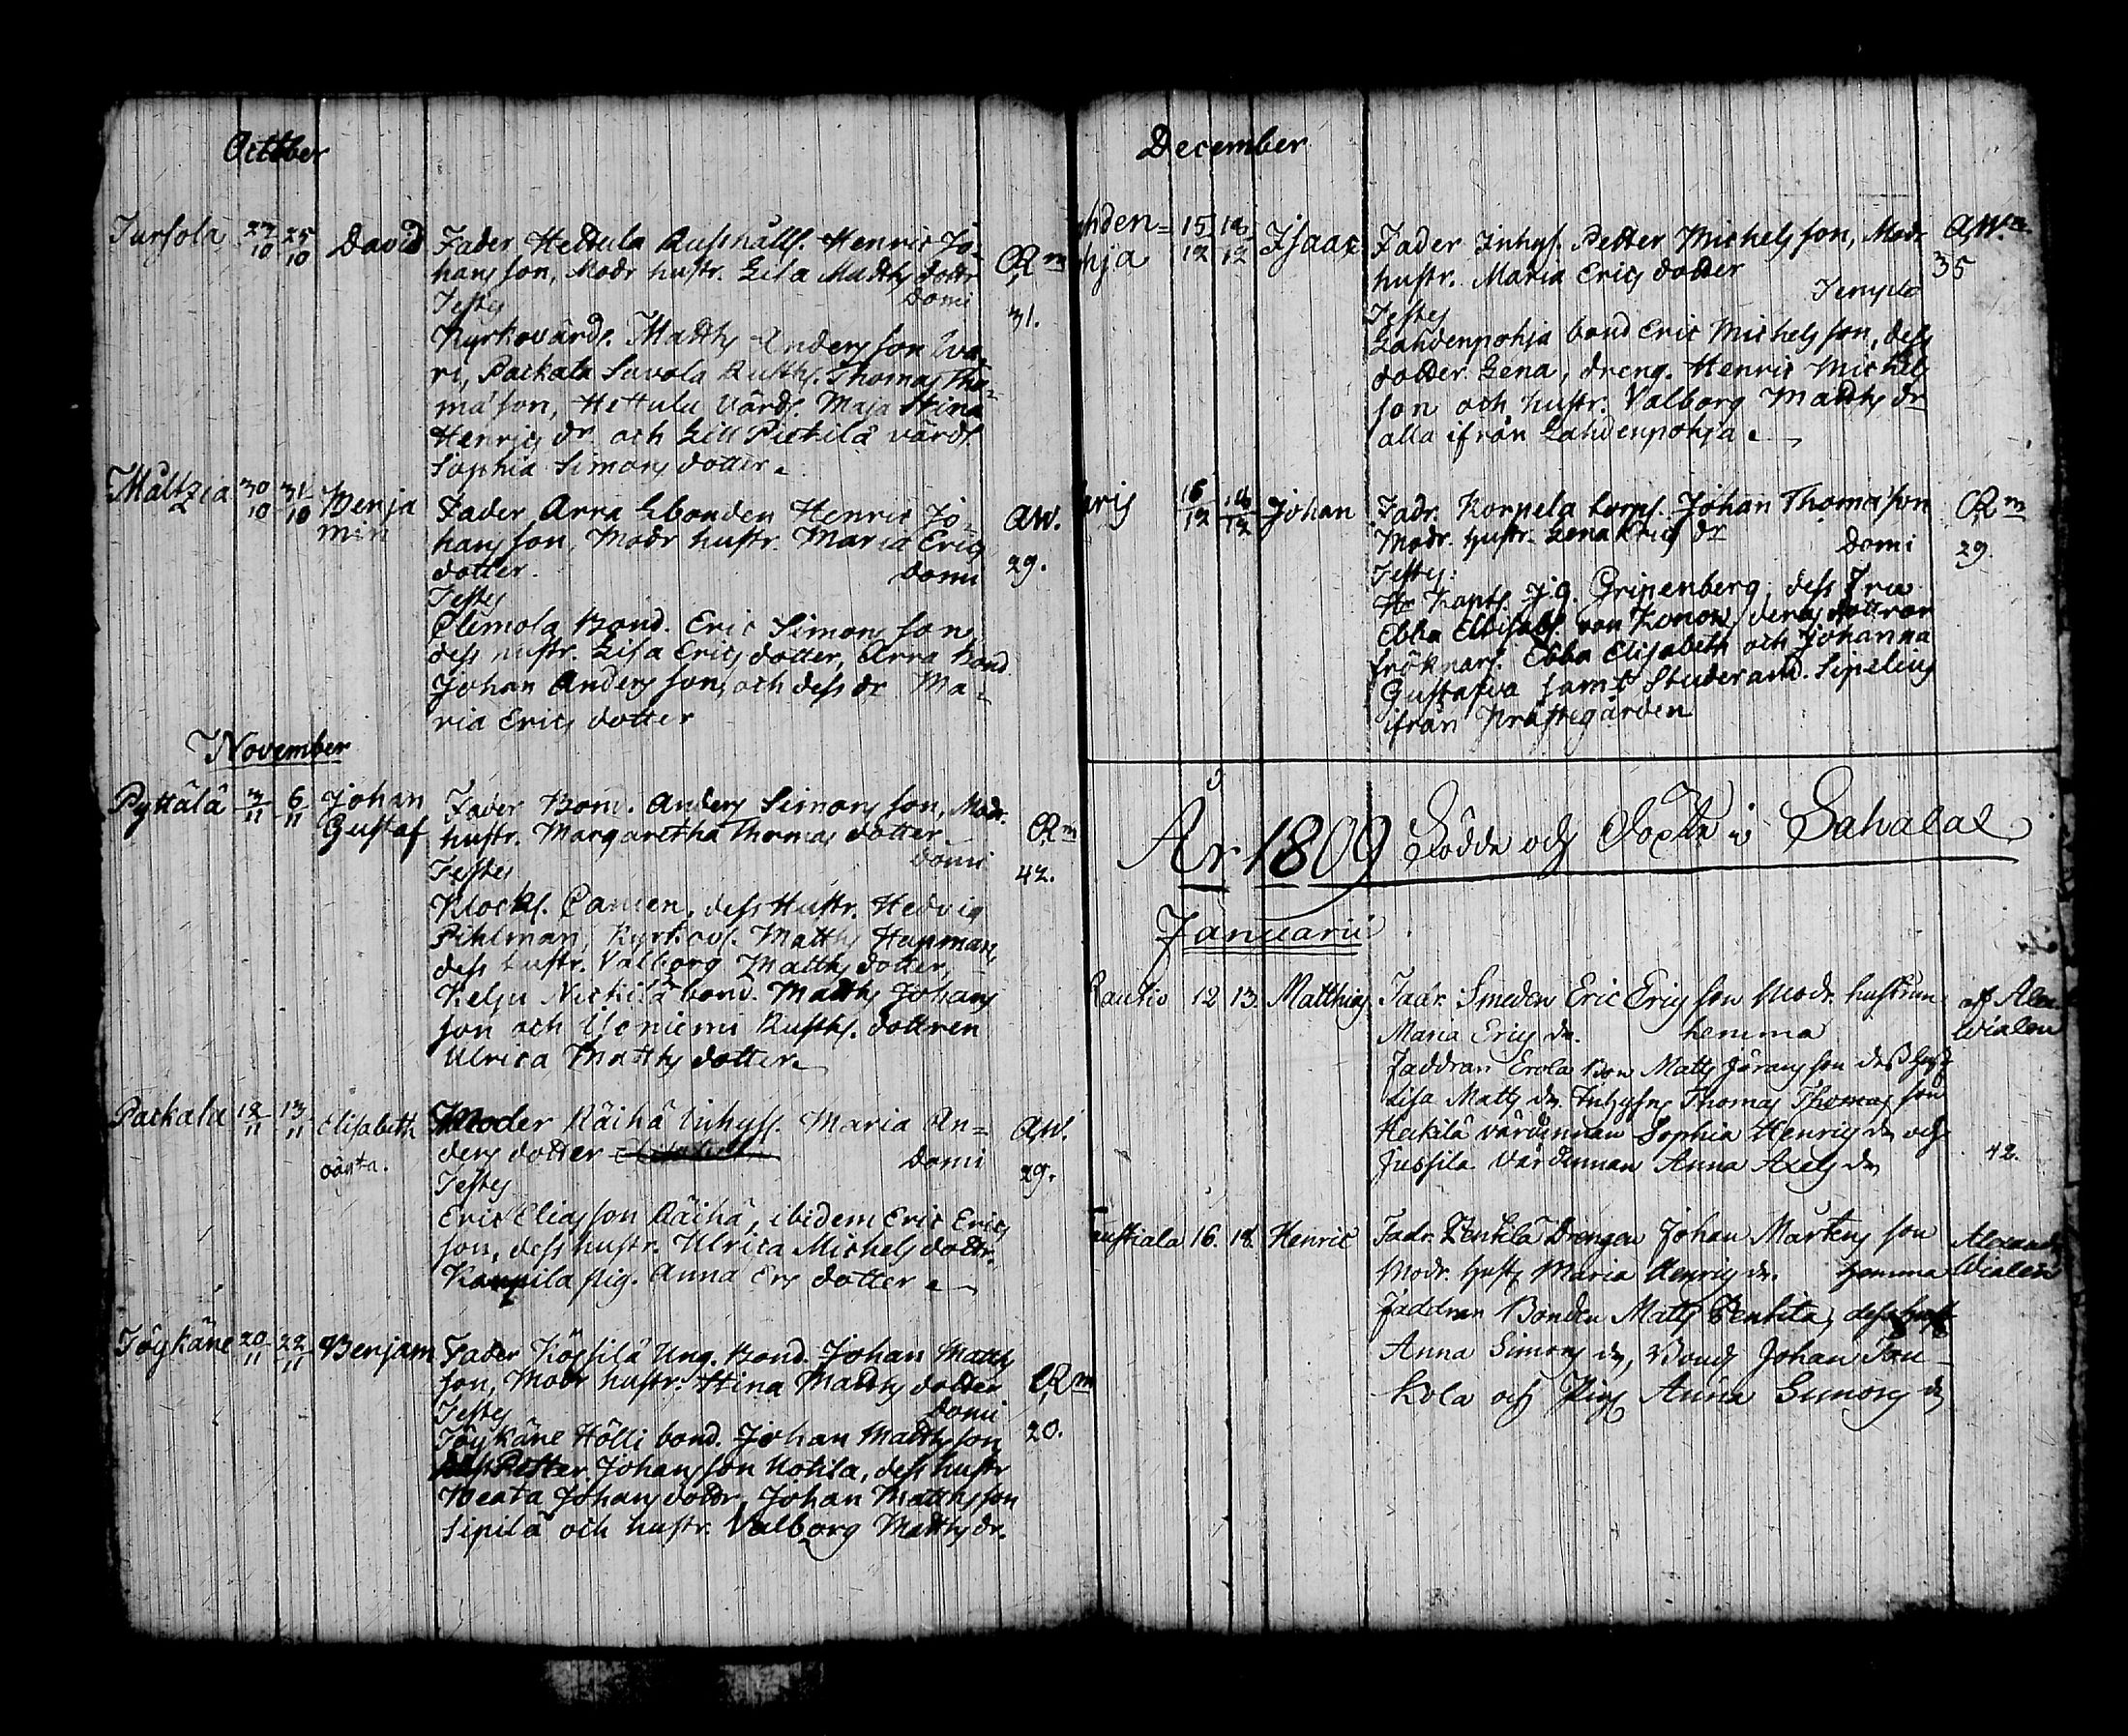 October
Tursola 24/10 25/10 David Fader Hettula Rusthålls. Henric Jo-
hans son, Modr hustr. Lisa Matths dottr CR m
Testes domi 31.
Kyrkovärd. Matths Anders son
ri, Packala Savola Rusth. Thomas Tho-
mæ son, Hettula värds. Maja Stina
Henrics dr och Lill Pietilä värds.
Sophia Simons dotter.
Maltzia 30/10 31/10 Benja Fader Arra Lbonden Henric Jo- AW.
min hans son, Modr hustr. Maria Erics
dotter. domi 29.
Testes
Clemola Bond. Eric Simons son,
dess hustr. Lisa Erics dotter, Arra bond
Johan Anders son, och dess dr Ma-
ria Erics dotter
November
Pyttälä 3/11 6/11 Johan Fader Bond. Anders Simons son, Modr.
Gustaf hustr. Margaretha Thomas dotter CR m
Testes domi 42.
Klock. dess Hustr. Hedvig
Pihlman, Kyrkov. Matths
dess hustr. Valborg Matths dotter,
Kelju Nickilä bond. Matths Johans
son och Isoniemi Rusth. dottren
Ulrica Matths dotter
Packala 12/11 13/11 Elisabeth Moder Räihä Inhyss. Maria An= AW.
oägta. ders dotter domi
Testes 29.
Eric Elias son Räihä, ibidem Eric Erics
son, dess hustr. Ulrica Michels dottr.
pig. Anna Ers dotter
Töykäne 20/11 22/11 Benjam Fader Kössilä Ung. Bond. Johan Matths
son, Modr hustr. Stina Matths dotter CR m
Testes domi
Töykäne Hölli bond. Johan Matths son 20.
Petter Johans son Uotila, dess hustr
Beata Johans dottr, Johan Matths son
Sipilä och hustr. Valborg Matths dr.
December
hden= 15/12 18/12 Isaac Fader Inhys. Petter Michels son, Modr AW.
hja hustr. Maria Erics dotter 35
Testes Templo
Lahdenpohja bond Eric Michels son, dess
dotter Lena, dreng. Henric Michels
son och hustr. Valborg Matths dr
alla ifrån Lahdenpohja.
16/12 18/12 Johan Fadr. Korpela torp. Johan Thomæ son CR m
Modr. hustr. Lena Erics dr domi 29.
Testes:
Hr Kapt. J. G. Gripenberg, dess Fru
Ebba Elisab. von Konow, deras döttrar
fröknars. Ebba Elisabeth och Johanna
Gustafva samt Studerand. Sipelius
ifrån Prästegården
År 1809 Födde och Döpte i Sahalax
Januarii
Rautio 12 13. Matthias Fadr. Smeden Eric Erics son Modr. hustrun af Alex
Maria Erics dr. hemma Wialen
Faddran Erola Bon Matts Jörans son dess hustr
Lisa Matts dr Inhyses Thomas Thomas son
Heikilä värdinnan Sophia Henrics dr och
Jussila värdinnan Anna Axels dr 42.
16. 18. Henric Fadr. Pentilä Drengen Johan Mårtens son Alexand
Modr. Hustr Maria Henrics dr. hemma Wialen
Faddran Bonden Matts Pentila, dess hust
Anna Simons dr, Bond Johan Tau-
kola och Pig Anna Simons dr